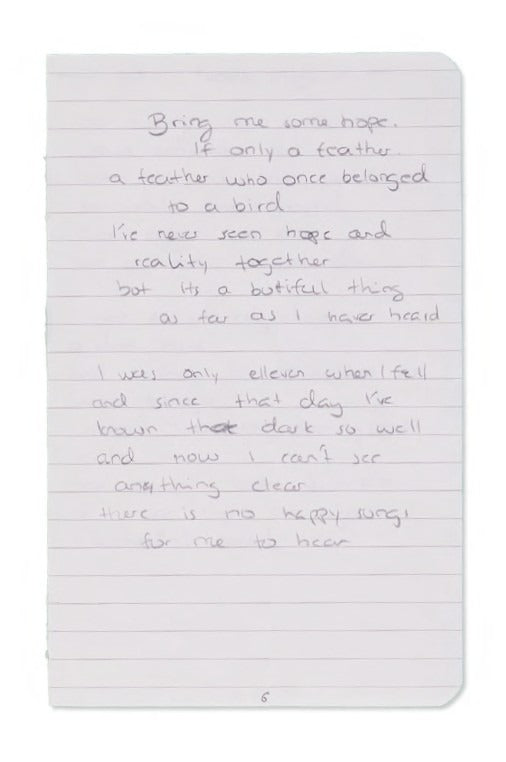 Bring me some hope.
If only a feather.
a feather who once belonged
to a bird
I've never seen hope and
reality together
but its a butifull thing
as far as I haver heard
I was only elleven when I fell
and since that day I've
known that dark so well
and now I can't see
anything clear
there is no happy songs
for me to hear
6